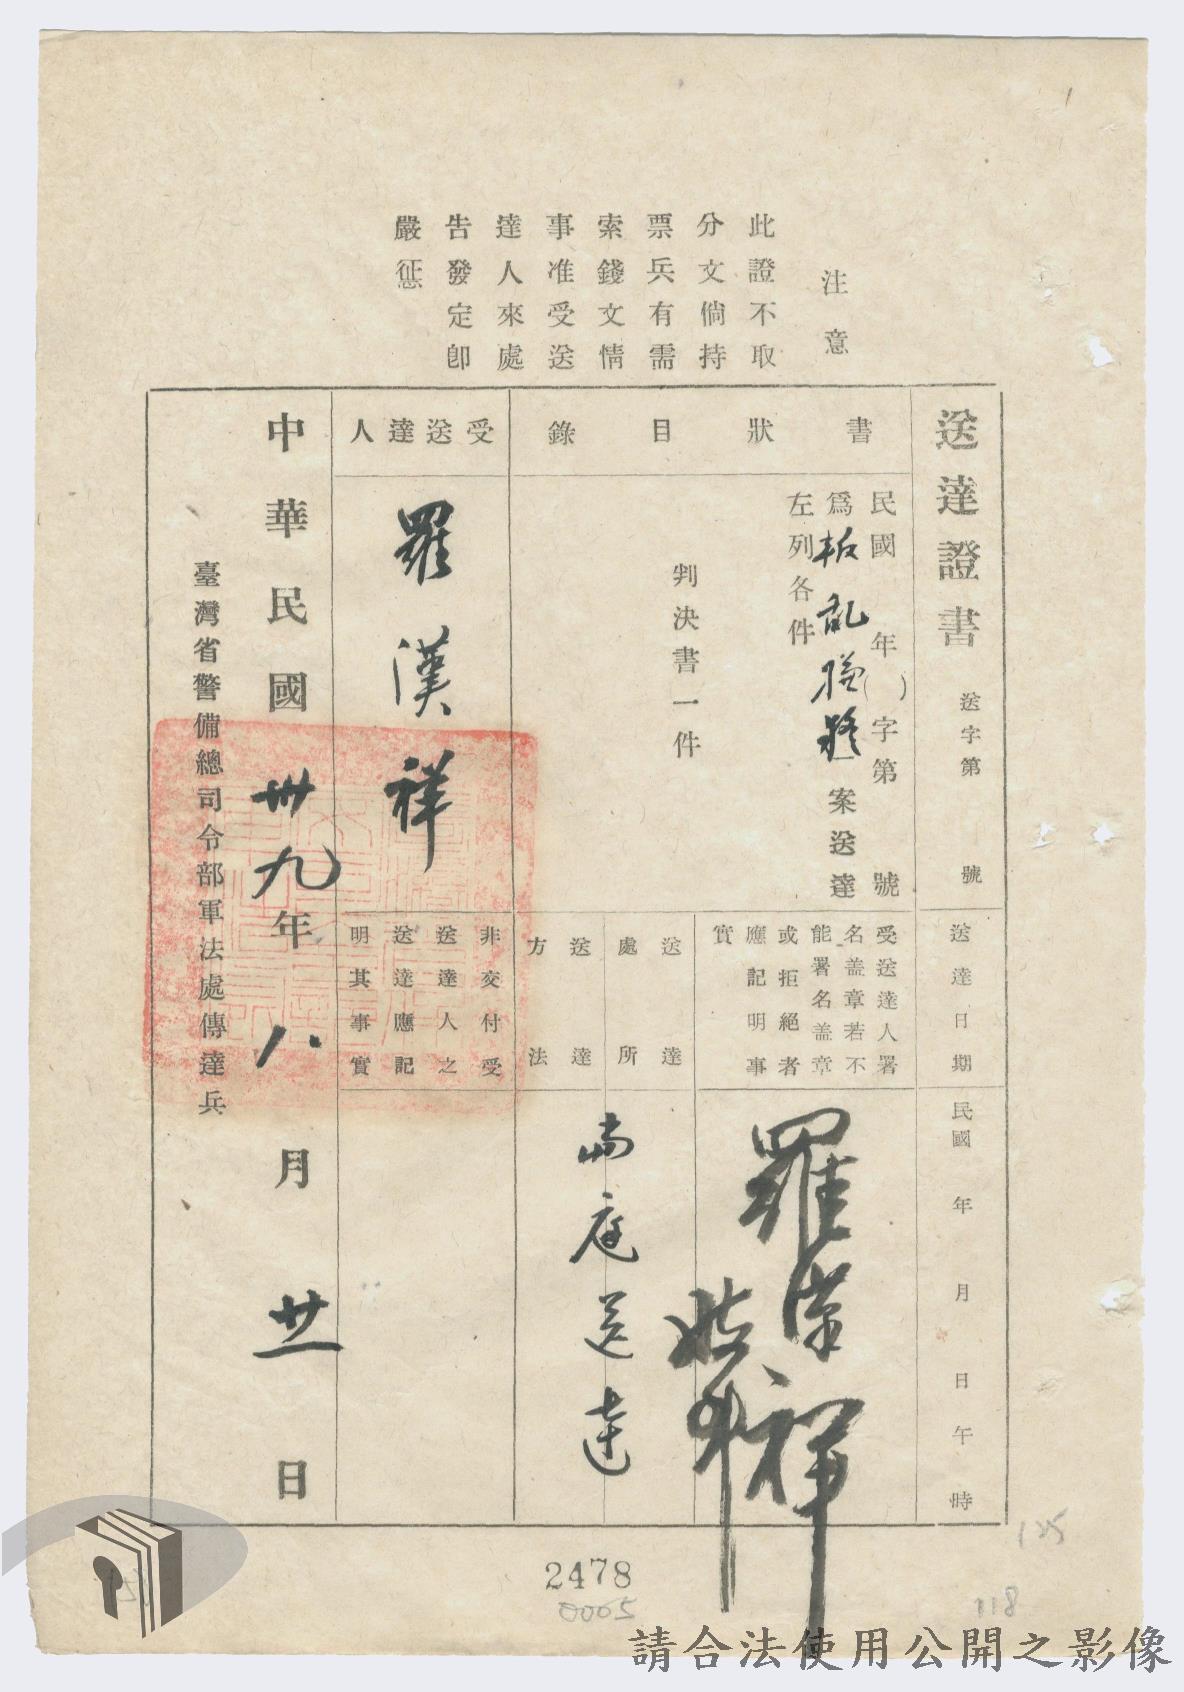 注意
此證不取
分文倘持
票兵有需
索錢文情
事准受送
達人來處
告發定卽
嚴懲
送達證書
送字第　號
書狀目錄
民國　年(　)字第　號
爲叛亂嫌疑案送達
左列各件
判決書一件
受送達人
羅漢祥
送達日期
民國　年　月　日午　時
受送達人署
名盖章若不
能署名盖章
或拒絕者
應記明事
實
羅漢祥
送達
處所
送達
方法
當庭送達
非交付受
送達人之
送達應記
明其事實
中華民國卅九年八月廿一日
臺灣省警備總司令部軍法處傳達兵
2478
0065
125
118
請合法使用公開之影像